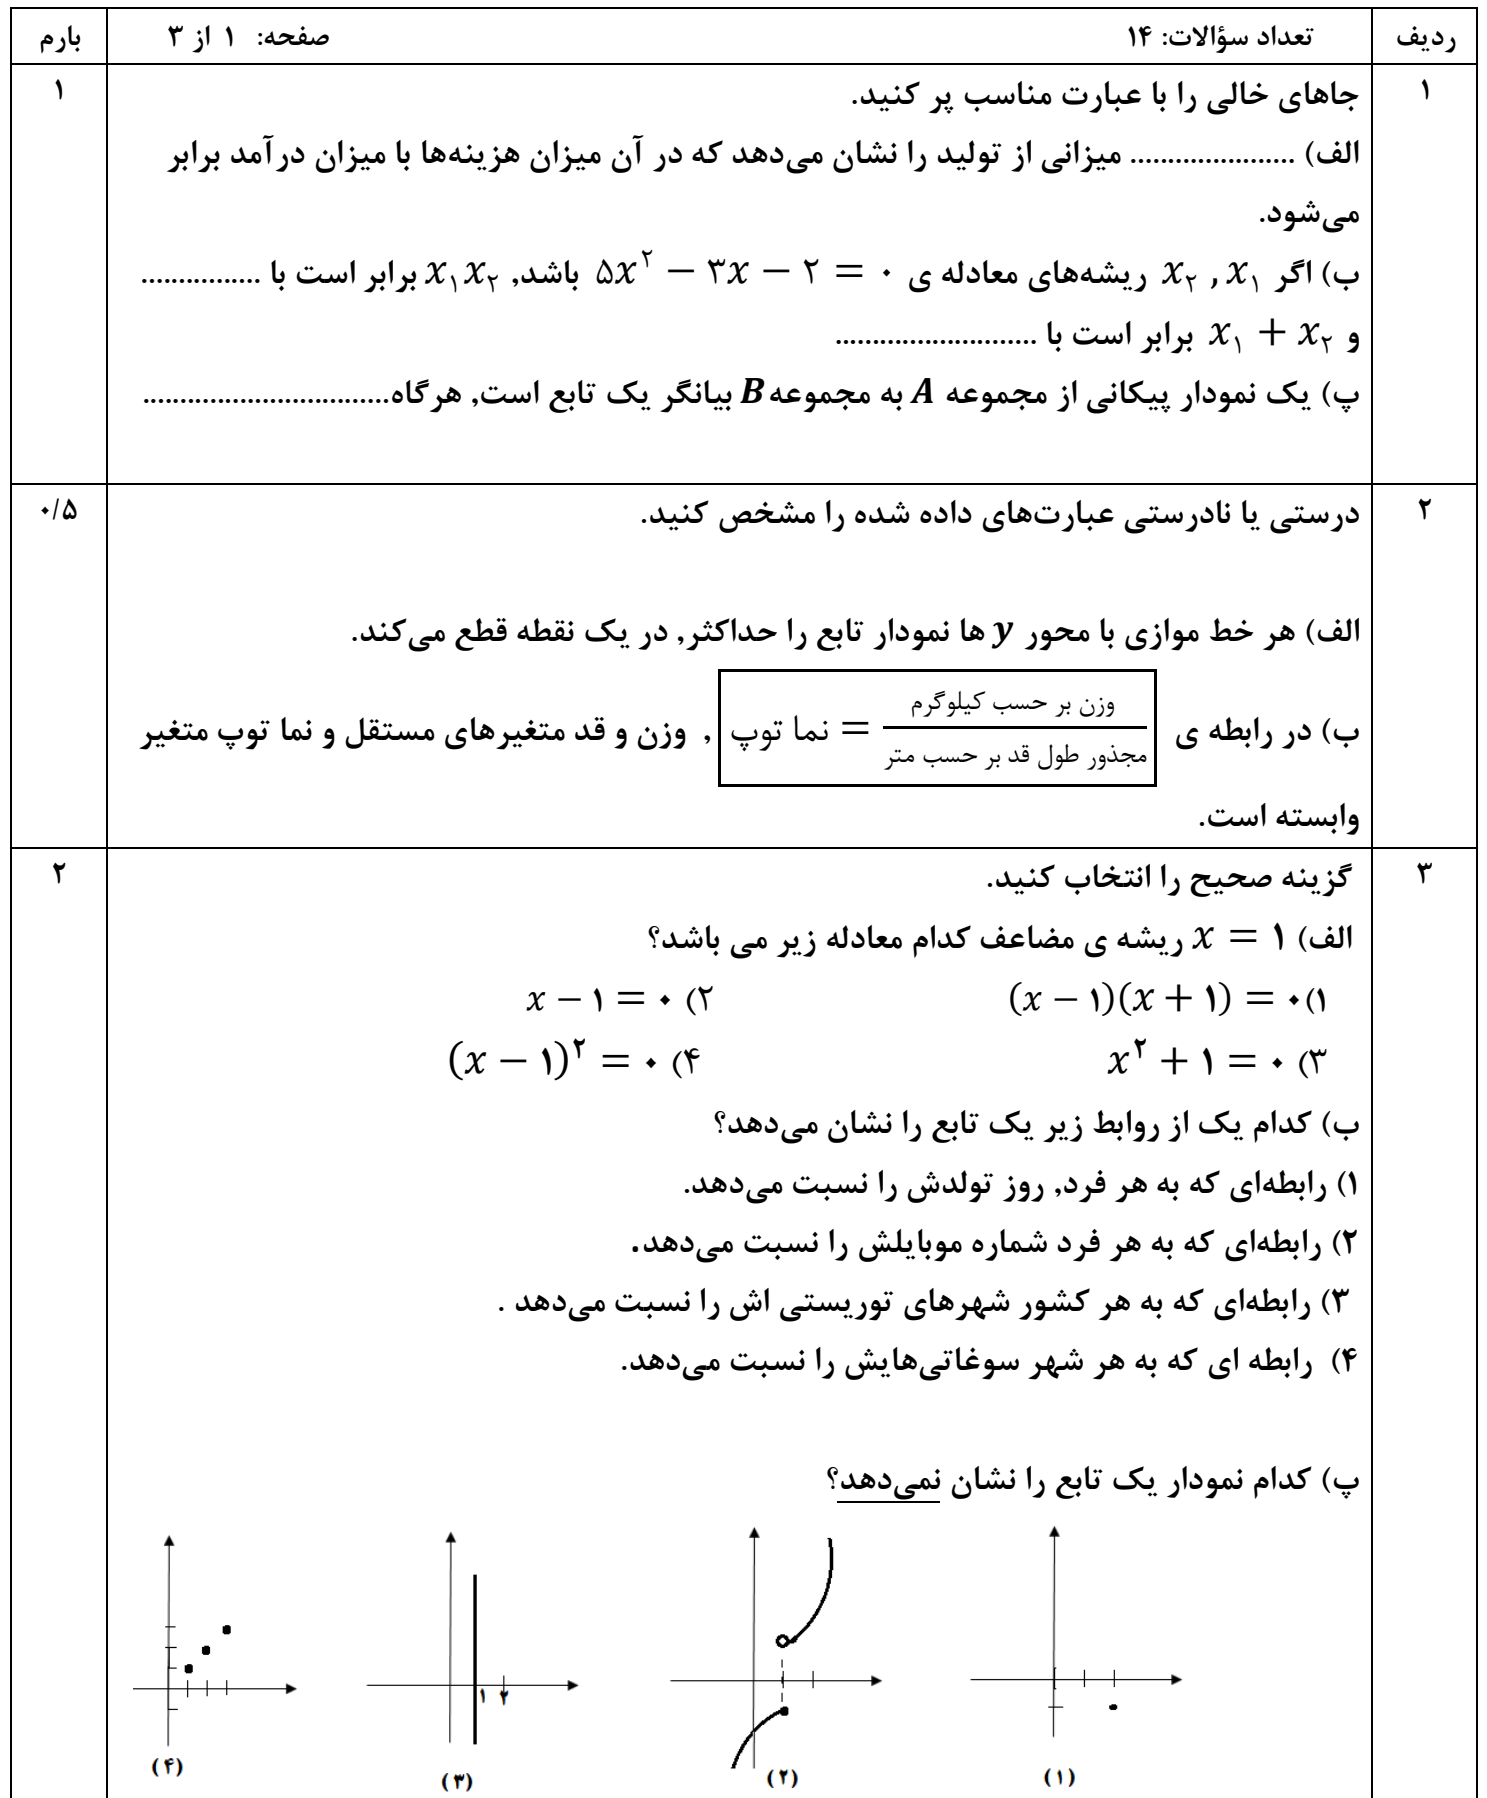 ردیف تعداد سؤالات: ۱۴ صفحه: ۱ از ۳ بارم
۱ جاهای خالی را با عبارت مناسب پر کنید. ۱
الف) ...................... میزانی از تولید را نشان می‌دهد که در آن میزان هزینه‌ها با میزان درآمد برابر
می‌شود.
ب) اگر x₁ , x₂ ریشه‌های معادله ی ۵x² − ۳x − ۲ = ۰ باشد, x₁x₂ برابر است با ................
و x₁ + x₂ برابر است با ...........................
پ) یک نمودار پیکانی از مجموعه A به مجموعه B بیانگر یک تابع است, هرگاه.................................
۲ درستی یا نادرستی عبارت‌های داده شده را مشخص کنید. ۰/۵
الف) هر خط موازی با محور y ها نمودار تابع را حداکثر, در یک نقطه قطع می‌کند.
ب) در رابطه ی نما توپ = وزن بر حسب کیلوگرم / مجذور طول قد بر حسب متر , وزن و قد متغیرهای مستقل و نما توپ متغیر
وابسته است.
۳ گزینه صحیح را انتخاب کنید. ۲
الف) x = ۱ ریشه ی مضاعف کدام معادله زیر می باشد؟
۱) (x − ۱)(x + ۱) = ۰ ۲) x − ۱ = ۰
۳) x² + ۱ = ۰ ۴) (x − ۱)² = ۰
ب) کدام یک از روابط زیر یک تابع را نشان می‌دهد؟
۱) رابطه‌ای که به هر فرد, روز تولدش را نسبت می‌دهد.
۲) رابطه‌ای که به هر فرد شماره موبایلش را نسبت می‌دهد.
۳) رابطه‌ای که به هر کشور شهرهای توریستی اش را نسبت می‌دهد .
۴) رابطه ای که به هر شهر سوغاتی‌هایش را نسبت می‌دهد.
پ) کدام نمودار یک تابع را نشان نمی‌دهد؟
۱ ۲
(۱) (۲) (۳) (۴)